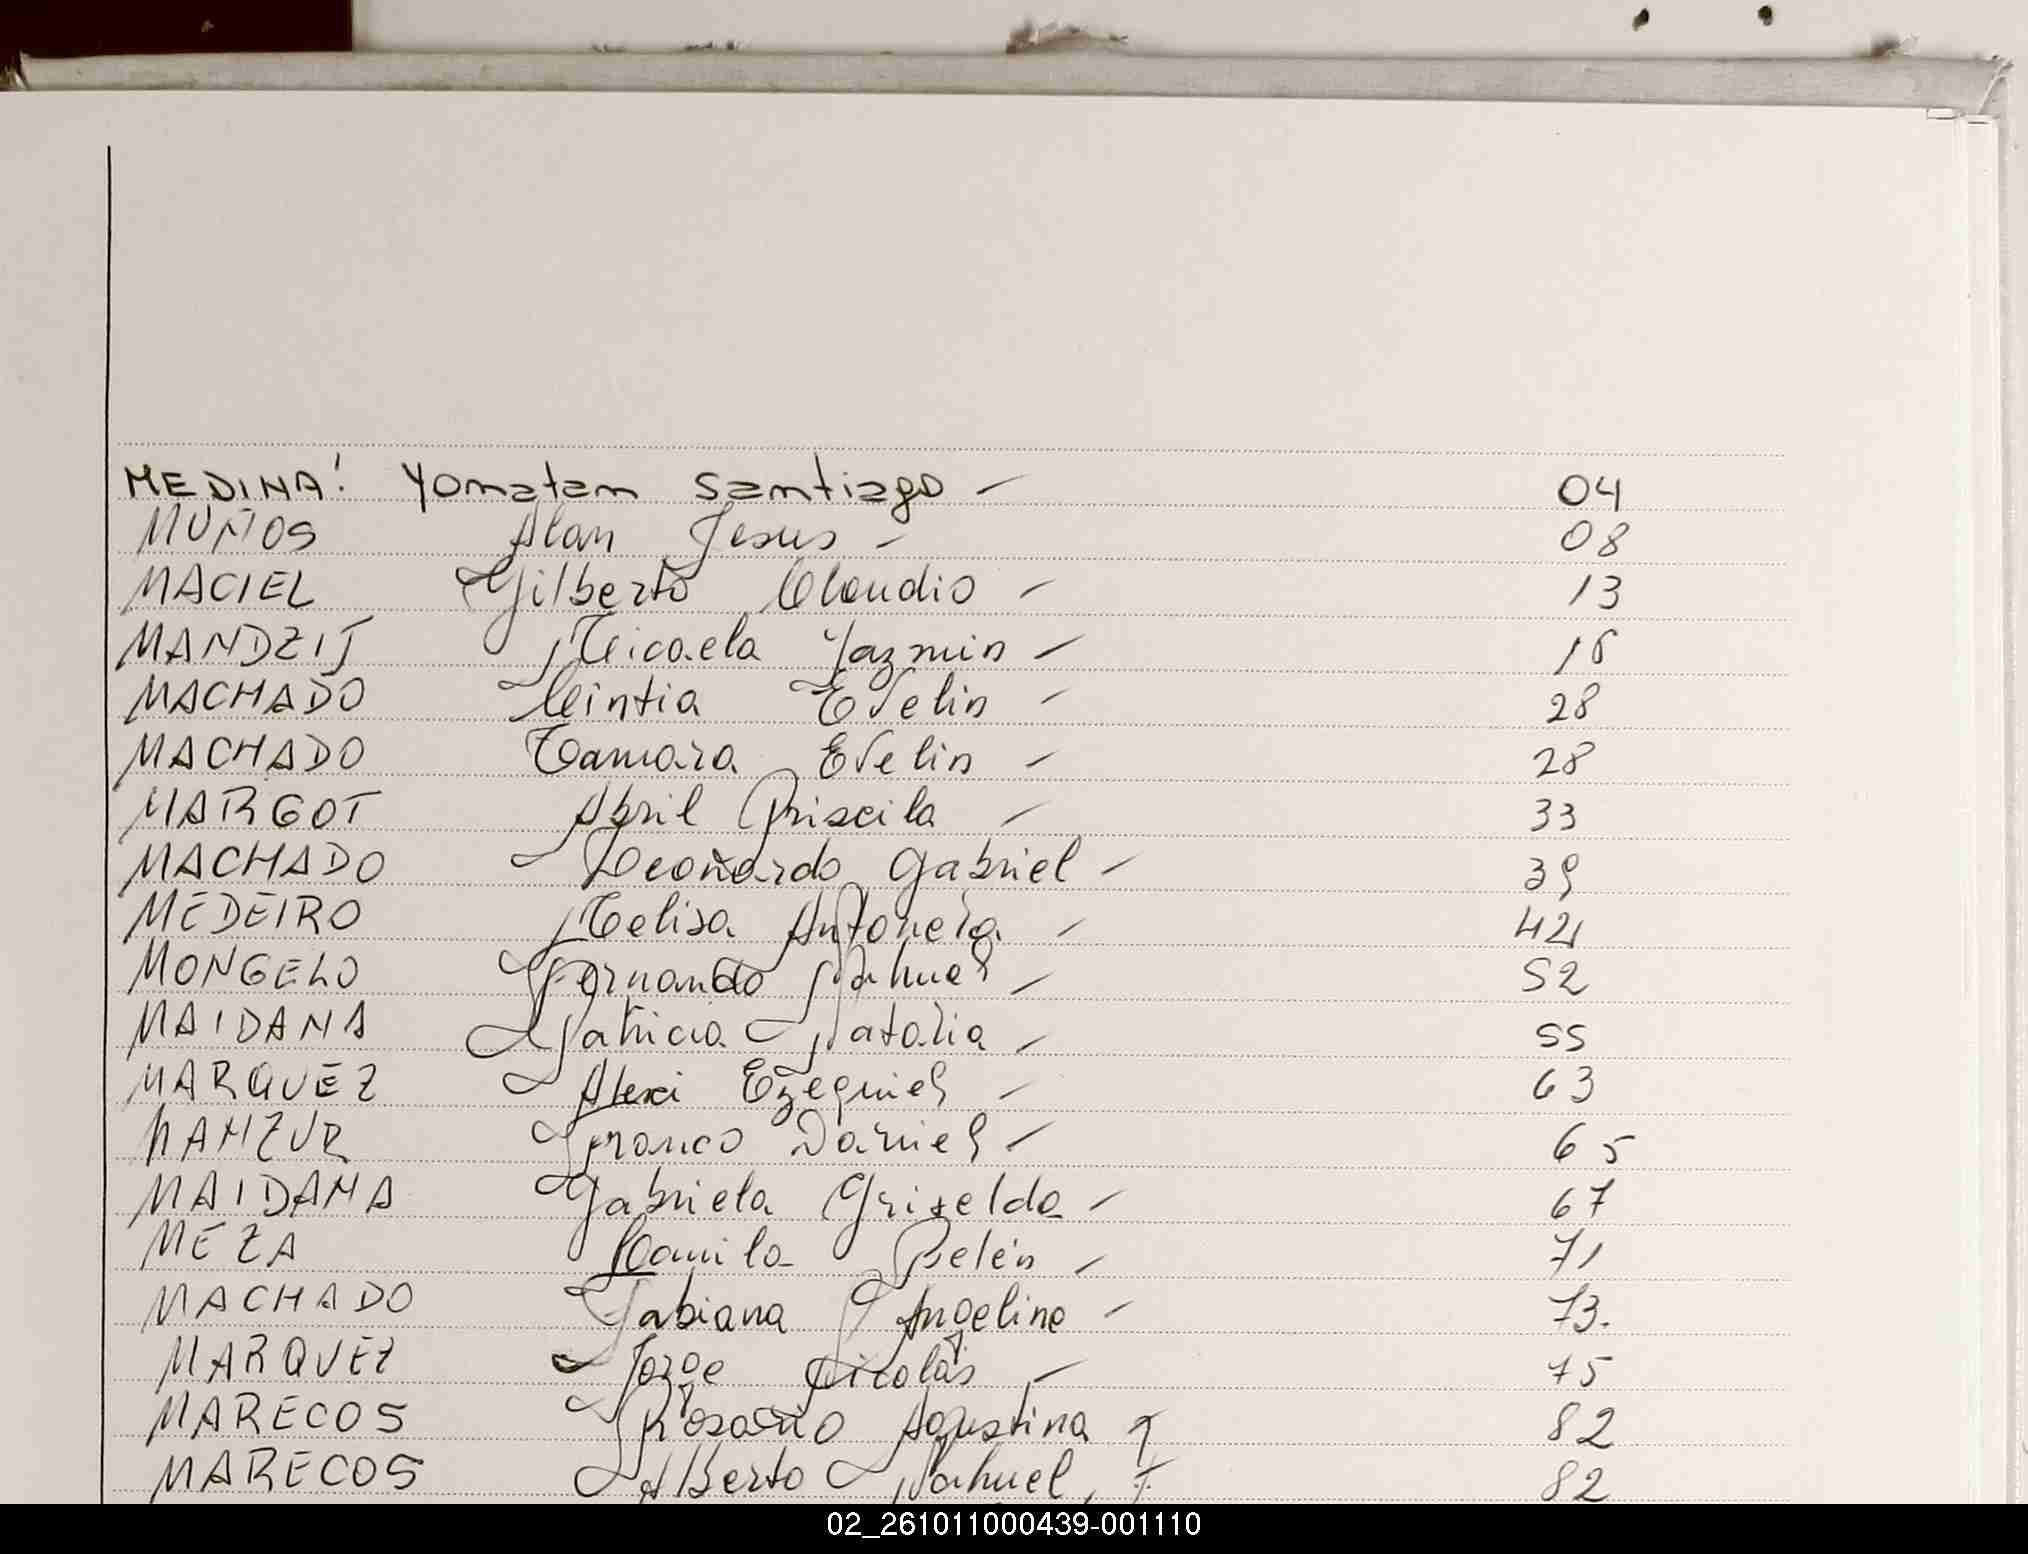 MEDINA! Yonatan Santiago - 04
MUÑOS Alan Jesus - 08
MACIEL Gilberto Claudio - 13
MANDZIJ Micaela Yazmin - 16
MACHADO Cintia Evelin - 28
MACHADO Tamara Evelin - 28
MARGOT Abril Priscila - 33
MACHADO Leonardo Gabriel - 39
MEDEIRO Melisa Antonela - 42
MONGELO Fernando Nahuel - 52
MAIDANA Patricia Natalia - 55
MARQUEZ Alexi Ezequiel - 63
MANZUR Franco Daniel - 65
MAIDANA Gabriela Griselda - 67
MEZA Camila Belén - 71
MACHADO Fabiana Angelina - 73.
MARQUEZ Jorge Nicolás - 75
MARECOS Rosario Agustina 82
MARECOS Alberto Nahuel, 82
02_261011000439-001110